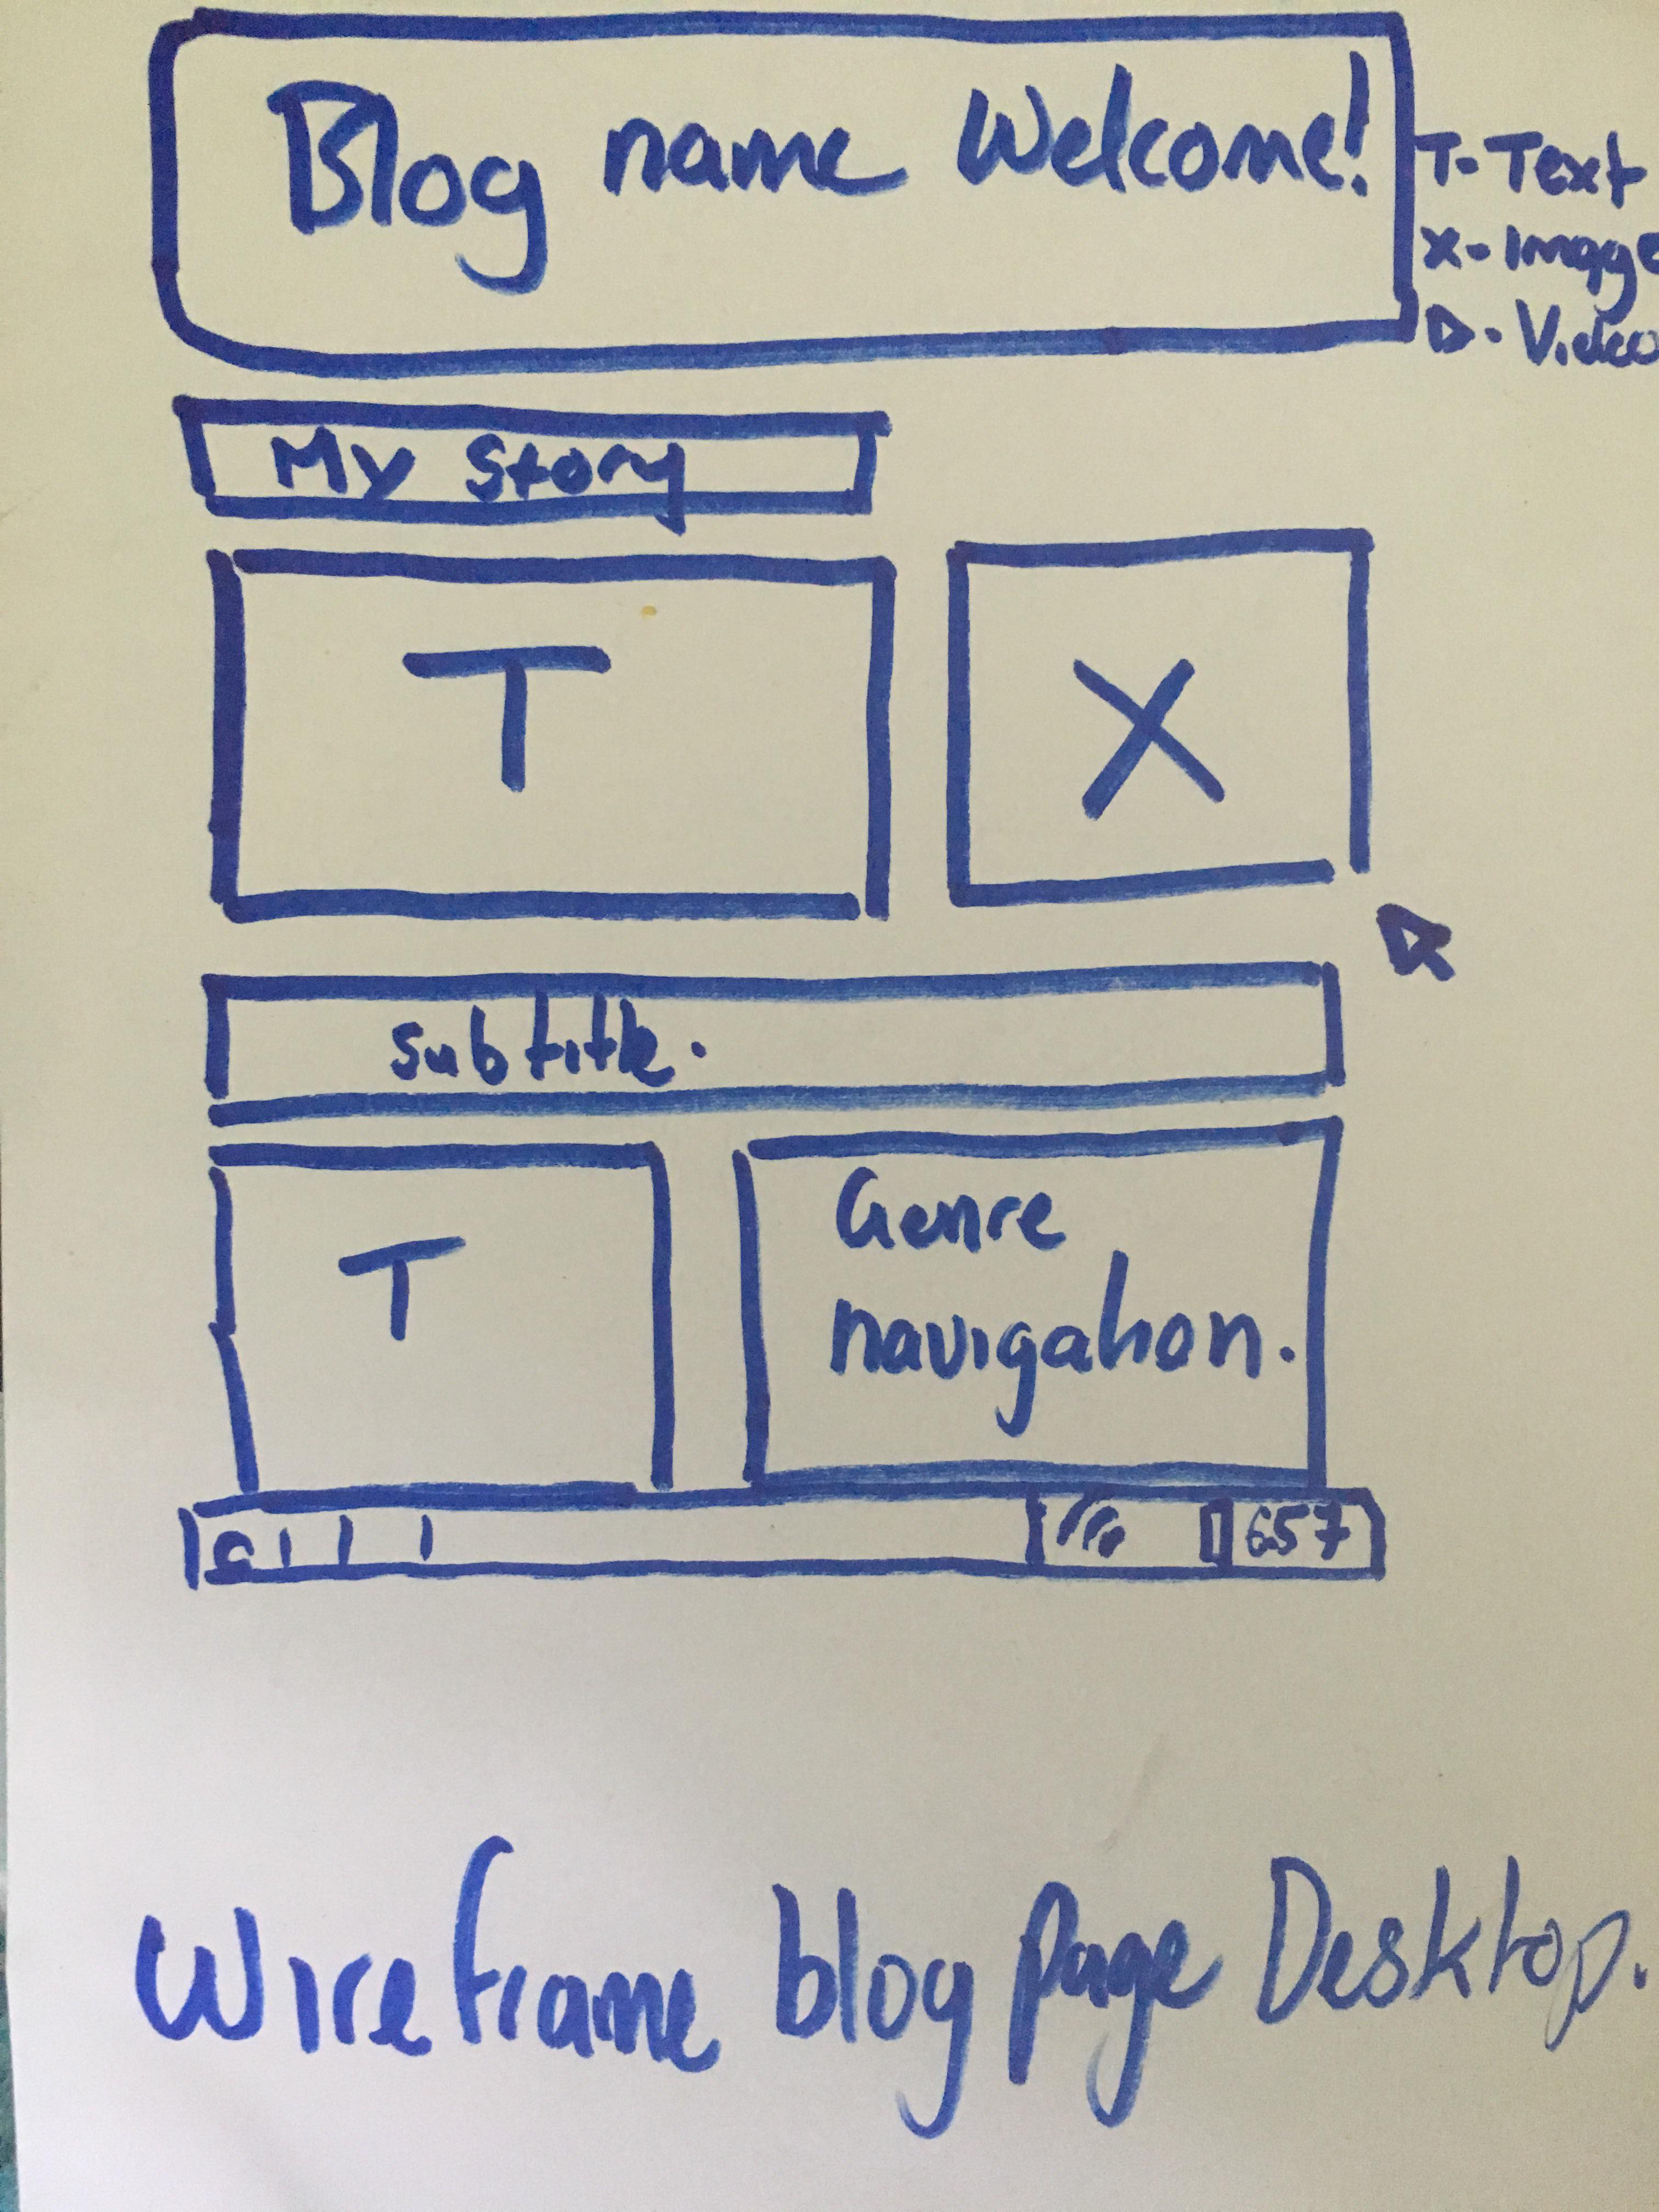 Blog name Welcome!
T-Text
X-Image
▷-Video
My Story
T
X
subtitle.
T
Genre
navigation.
657
Wireframe blog page Desktop.